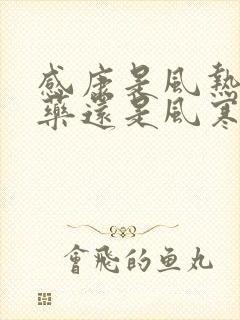 感康是風熱
藥還是風寒
會飛的魚丸